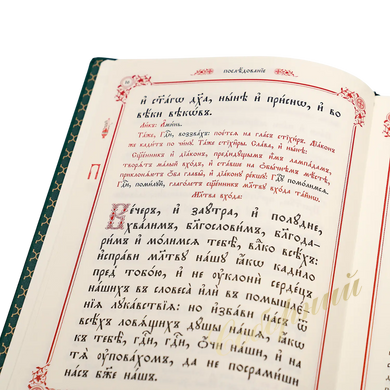 послѣ́дованїе
и҆ ст҃а́гѡ дх҃а, ны́нѣ и҆ при́снѡ, и҆ во
вѣ́ки вѣкѡ́въ.
Ли́къ: А҆ми́нь.
Та́же, Гдⷭ҇и, воззва́хъ: пое́тся на гла́съ стїхи́ры. Дїа́конъ
же кади́тъ по чи́нꙋ. Та́же стїхи́ры. Сла́ва, и҆ ны́нѣ:
Сщ҃е́нникъ и҆ дїа́конъ, предиды́щымъ и҆̀мъ лампа́дамъ,
творѧ́тъ ма́лый вхо́дъ, и҆ ста́вше на ѻ҆бы́чнѣмъ мѣ́стѣ,
приклонѧ́ютъ ѻ҆́ба главы̑, и҆ дїа́конꙋ ре́кшꙋ: Гдⷭ҇ꙋ помо́лимсѧ.
Гдⷭ҇и, поми́лꙋй, глаго́летъ сщ҃е́нникъ мл҃твꙋ вхо́да та́йнѡ.
Мл҃тва вхо́да:
Ве́черъ, и҆ заꙋ́тра, и҆ полꙋ́дне,
хва́лимъ, благослови́мъ, благода-
ри́мъ и҆ мо́лимсѧ тебѣ̀, влⷣко всѣ́хъ:
и҆спра́ви мл҃твꙋ на́шꙋ ꙗ҆́кѡ кади́ло
пред̾ тобо́ю, и҆ не ᲂу҆клонѝ серде́цъ
на́шихъ въ словеса̀ и҆лѝ въ помышлє́-
нїѧ лꙋка́вствїѧ: но и҆зба́ви на́съ ѿ
всѣ́хъ ловѧ́щихъ дꙋ́шы на́шѧ, ꙗ҆́кѡ
къ тебѣ̀, гдⷭ҇и, гдⷭ҇и, ѻ҆́чи на́ши, и҆ на
тѧ̀ ᲂу҆пова́хомъ, да не посрами́ши
на́съ бж҃е на́шъ.
П